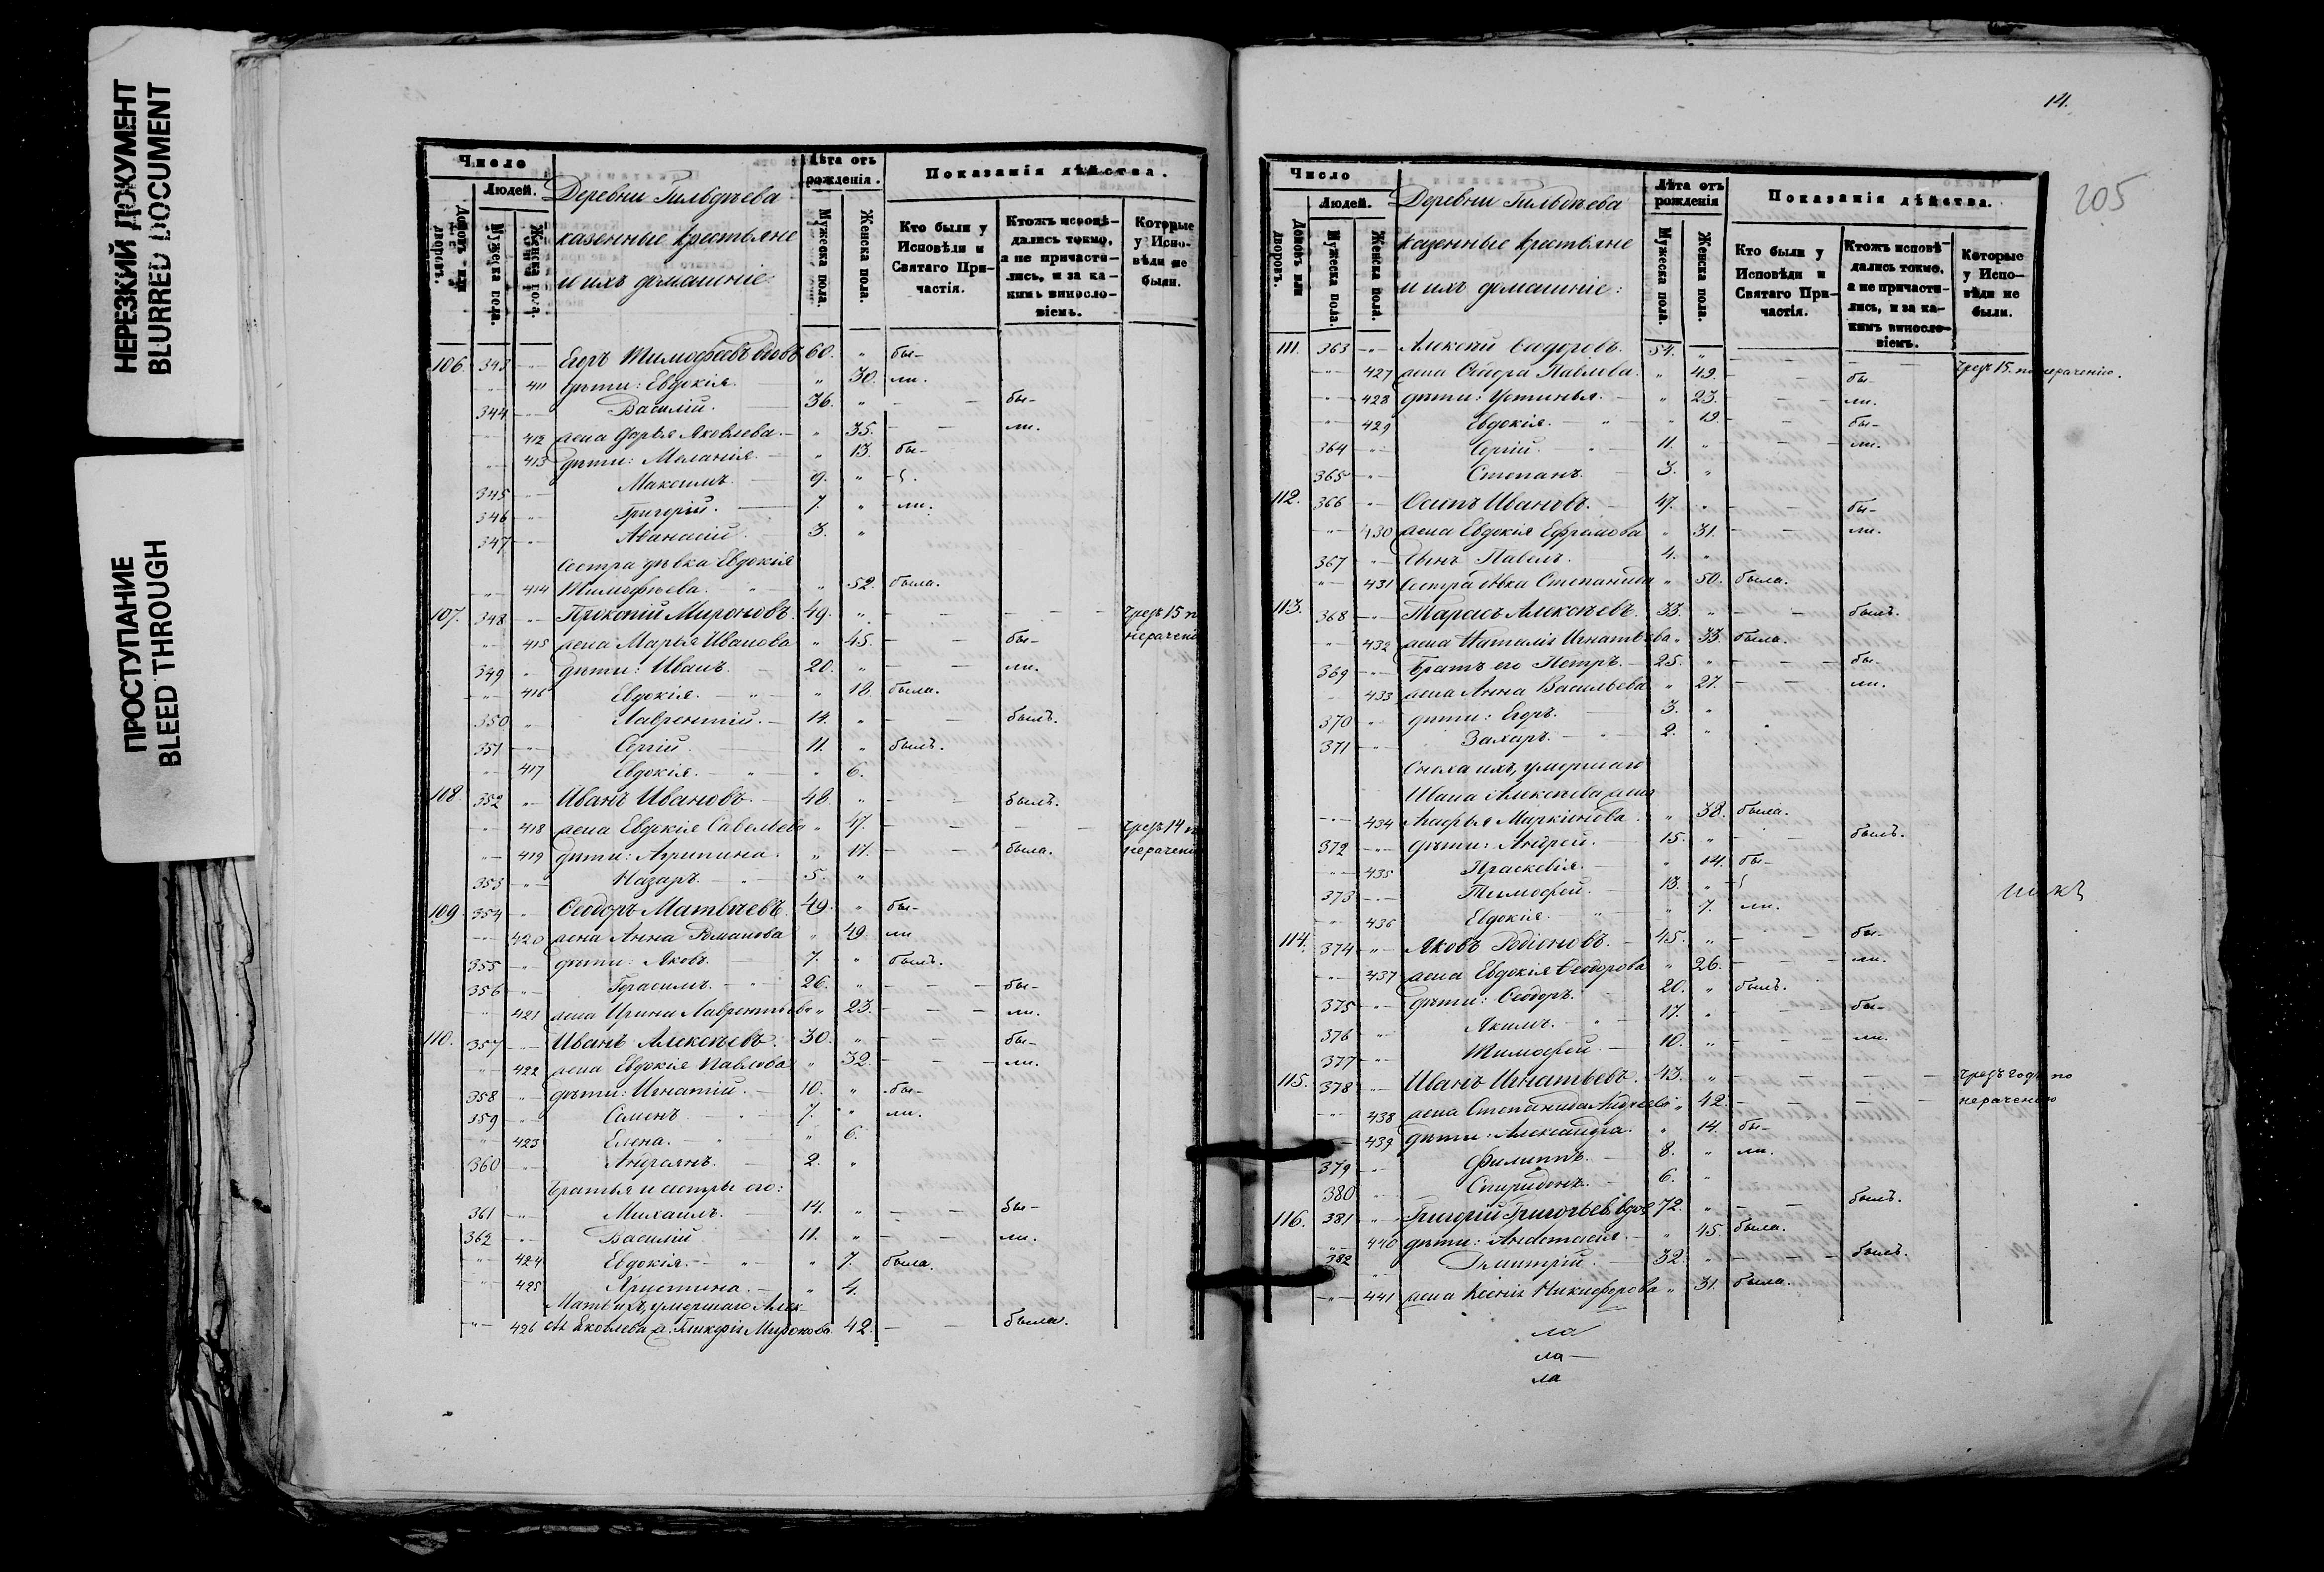 НЕРЕЗКИЙ ДОКУМЕНТ
BLURRED DOCUMENT
ПРОСТУПАНИЕ
BLEED THROUGH
Число
Людей.
Домовъ или дворовъ.
Мужеска пола.
Женска пола.
Деревни Гильдѣева
казенные крестьяне
и ихъ домашніе:
Лѣта отъ рожденія.
Мужеска пола.
Женска пола.
Показанія дѣйства.
Кто были у Исповѣди и Святаго Причастія.
Ктожъ исповѣдались токмо, а не причастились, и за какимъ винословіемъ.
Которые у Исповѣди не были.
106. 343 -"- Егоръ Тимофеевъ вдовъ 60. " бы-
-"- 411 дѣти: Евдокія. " 30. ли.
344 -"- Василій. 36. " - - бы-
-"- 412 жена Дарья Яковлева. " 35. - - ли.
-"- 413 дѣти: Меланія. " 13. бы-
345 -"- Максимъ. 9. "
346 -"- Григорій. 7. " ли.
347 -"- Аѳанасій. 3. "
Сестра дѣвка Евдокія
-"- 414 Тимофѣева. " 52. была.
107. 348 -"- Прокопій Мироновъ. 49. " - - - - чрезъ 15 п
-"- 415 жена Марья Иванова " 45. - - бы- нерачені
349 " дѣти: Иванъ. 20. " - - ли.
-"- 416 Евдокія. " 18. была.
350 " Лаврентій. 14. " - - былъ.
351 -"- Сергій. 11. " былъ.
-"- 417 Евдокія. " 6.
108. 352 " Иванъ Ивановъ. 48. " - - былъ.
-"- 418 жена Евдокія Савельева " 47. - - - - чрезъ 14 п
-"- 419 дѣти: Агрипина. " 17. - - была. нерачені
353 -"- Назаръ. 5. "
109. 354 " Ѳеодоръ Матвѣевъ. 49. " бы-
-"- 420 жена Анна Романова " 49. ли
355 -"- дѣти: Яковъ. 7. " былъ.
356 -"- Герасимъ. 26. " - - - бы-
" 421 жена Ирина Лаврентьева " 23. - - - ли.
110. 357 -"- Иванъ Алексѣевъ. 30. " - - бы-
-"- 422 жена Евдокія Павлова " 32. - - - ли.
358 " дѣти: Игнатій. 10. " бы-
359 -"- Семенъ. 7. " ли.
-"- 423 Елена. " 6.
360 -"- Андреянъ. 2. "
Братья и сестры его:
361 -"- Михаилъ. 14. " - - бы-
362 -"- Василій 11. " - - ли.
-"- 424 Евдокія. " 7. была.
-"- 425 Христина. " 4.
Мать ихъ, умершаго Алек-
-"- 426 сѣя Яковлева ж. Гликерія Миронова 42. - - была.
14.
205
Число
Людей.
Домовъ или дворовъ.
Мужеска пола.
Женска пола.
Деревни Гильдѣева
казенные крестьяне
и ихъ домашніе:
Лѣта отъ рожденія
Мужеска пола.
Женска пола.
Показанія дѣйства.
Кто были у Исповѣди и Святаго Причастія.
Ктожъ исповѣдались токмо, а не причастились, и за какимъ винословіемъ.
Которые у Исповѣди не были.
111. 363 -"- Алексѣй Ѳеодоровъ. 54. " - - - чрезъ 15. по нераченію.
-"- 427 жена Павлова. " 49. - - бы-
-"- 428 дѣти: Устинья. " 23. - - ли.
-"- 429 Евдокія. " 19. - - бы-
364 -"- Сергій. 11. " - - ли.
365 -"- Степанъ. 3. "
112. 366 -"- Осипъ Ивановъ. 47. " - - бы-
-"- 430 жена Евдокія Ефремова " 31. - - ли.
367 " Сынъ Павелъ. 4. "
" 431 Сестра дѣвка Степанида " 50. была.
113. 368 -"- Тарасъ Алексѣевъ. 33. " - - былъ.
-"- 432 жена Наталія Игнатьева " 33. была.
369 -"- Братъ его Петръ. 25. " - - - бы-
" 433 жена Анна Васильева " 27. - - ли.
370 " дѣти: Егоръ. 3. "
371 -"- Захаръ. 2. "
Сноха ихъ, умершаго
Ивана Алексѣева жена
-"- 434 Агафья Маркіонова " 38. была.
372 -"- дѣти: Андрей. 15. " - - былъ.
-"- 435 Праскевія. " 14. бы-
373 -"- Тимофей. 13. "
" 436 Евдокія. " 7. ли.
114. 374 " Яковъ Родіоновъ. 45. " - - бы-
-"- 437 жена Евдокія Ѳеодорова " 26. - - ли.
375 -"- дѣти: Ѳеодоръ. 20. " былъ.
376 -"- Якимъ. 17. " - - бы-
377 -"- Тимофей. 10. " - - ли.
115. 378 -"- Иванъ Игнатьевъ. 43. " - - - - чрезъ годъ по
-"- 438 жена Степанида Андреева " 42. - - - - нераченію
-"- 439 дѣти: Александра. " 14. бы-
379 -"- Филиппъ. 8. " ли.
380 " Спиридонъ. 6. "
116. 381 -"- Григорій Григорьевъ вдов 72. " - - былъ.
-"- 440 дѣти: Анастасія. " 45. была.
382 -"- Дмитрій. 32. " - - - былъ.
-"- 441 жена Ксенія Никифорова " 31. была.
ла
ла
ла